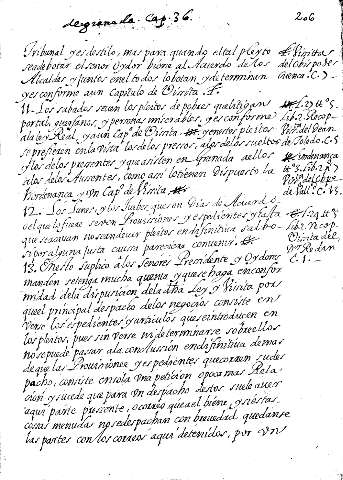 de granada. Cap. 36.
206
Tribunal, y es estilo, mas para quando el tal pleyto
se ade botar el señor Oydor biene al Acuerdo de los
Alcaldes, y juntos en el todos lo botan, y determinan
y es conforme a un Capitulo de Visita.
11. Los sabados seuen los pleitos de pobres que litigan
por tal, guerfanos, y personas miserables, y es conforme
a la ley Real, y a un Cap. de Visita y en estos pleitos
se prefieren en la vista los de los presos, a los de los sueltos
y los de los presentes y que asisten en Granada a ellos
a los de los Ausentes, como asi lo tienen dispuesto la
hordenanza, y un Cap. de Visita.
12. Los Lunes, y los Jueves que son Dias de Acuerdo
en que se seuen Prouisiones, y espedientes y hasta
que se acauan no se an de uer pleitos en difinitiua salbo
si por alguna justa caussa pareciere conuenir.
13. En esto suplico a los Señores Presidente y Oydores
manden se tenga mucha quenta y que se haga en confor
midad de la dispusicion de la dha Ley y Visita por
que el principal despacho de los negocios consiste en
verse los espedientes y articulos que se introducen en
los pleitos, pues sin verse ni determinarse sobre ellos
no se puede pasar a la conclussion en difinitiua demas
de que las Prouisiones y espedientes que coran su des
pacho, consiste en sola una peticion o poca mas Rela
cion y sucede que para un despacho de estos suele auer
aqui parte presente, o correo que a el biene, y si estas
cosas menudas no se despachan con brebedad quedanse
las partes con los correos aqui detenidos, por un
Visitas
del Obispo de
Cuenca. C. 5.
L. 27 tt. 5.
lib. 2. Recop.
Visita del Dean
de Toledo. C. 5
hordenanza
lib. 2.
C. 15.
L. 24 tt. 5
lib. 2. Recop.
Visita de
C. 1.